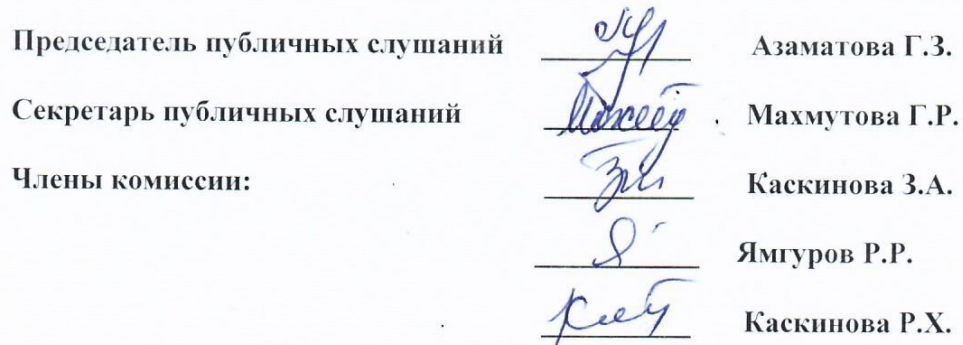 Председатель публичных слушаний Азаматова Г.З.
Секретарь публичных слушаний Махмутова Г.Р.
Члены комиссии: Каскинова З.А.
Ямгуров Р.Р.
Каскинова Р.Х.